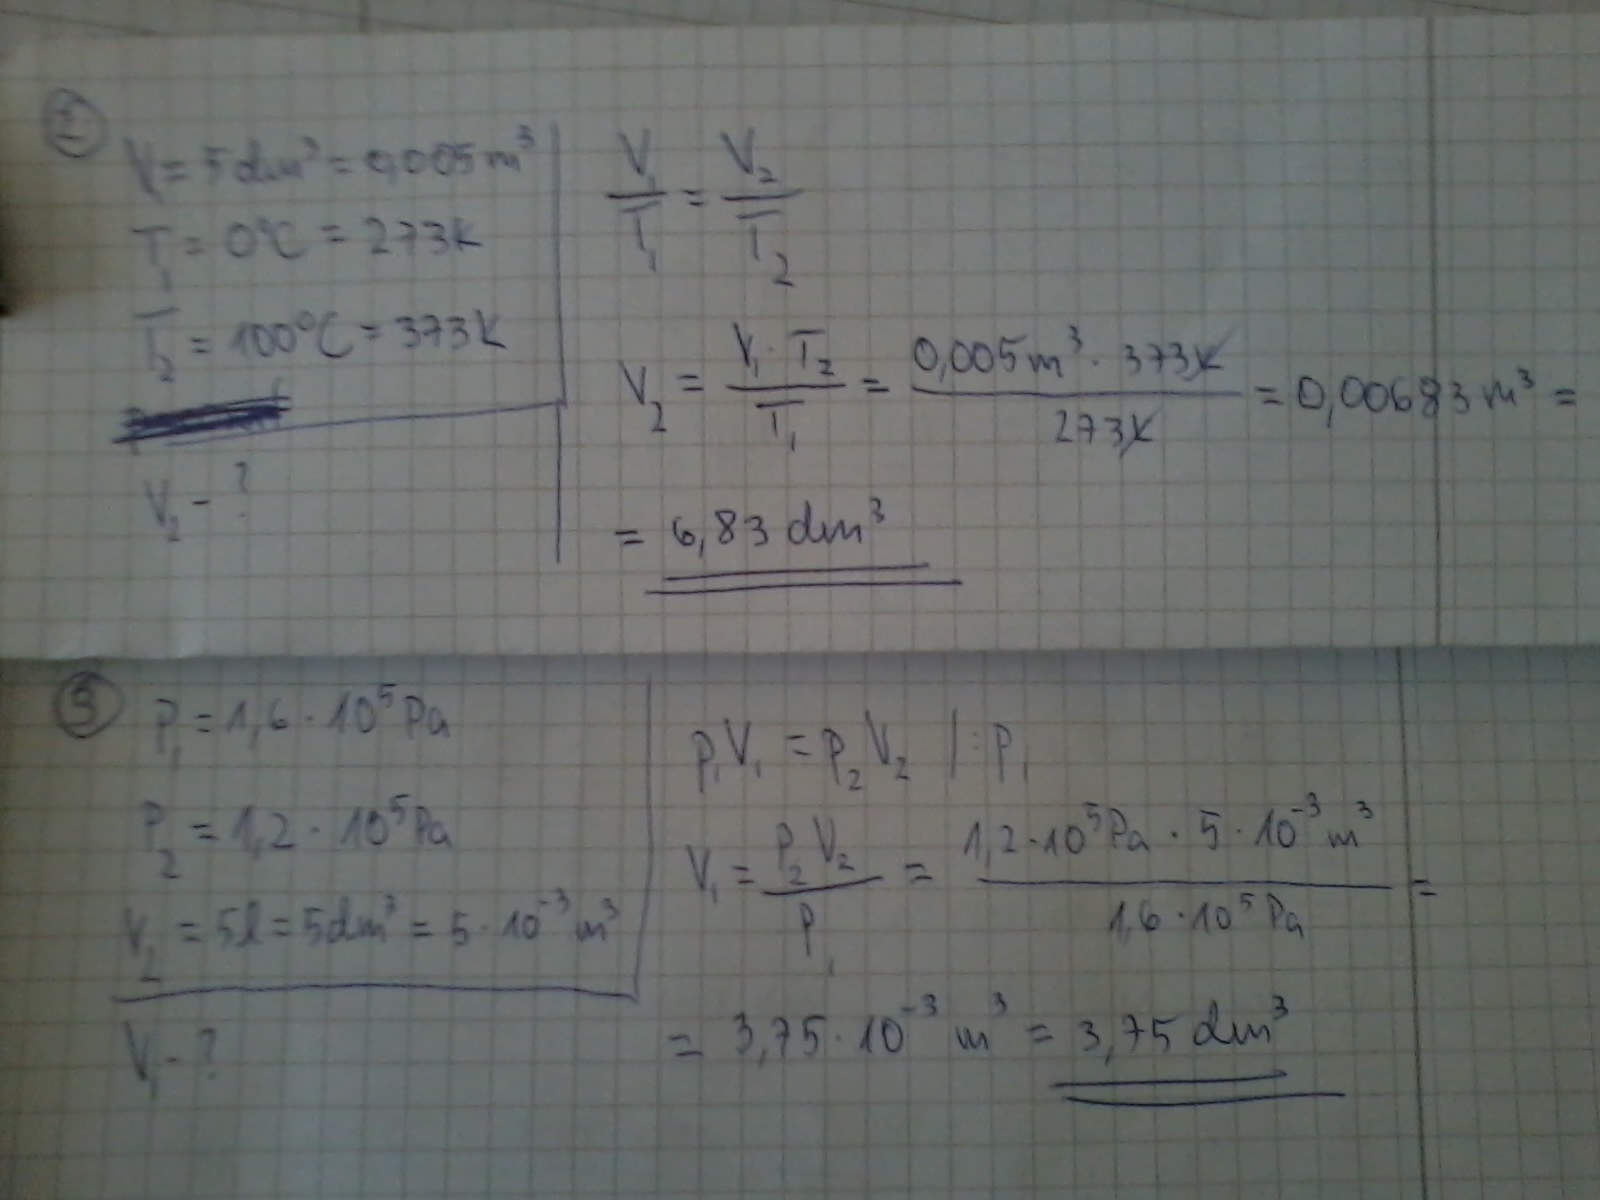 2
V = 5dm³ = 0,005m³
T₁ = 0°C = 273K
T₂ = 100°C = 373K
V₂ - ?
V₁/T₁ = V₂/T₂
V₂ = V₁ · T₂ / T₁ = 0,005m³ · 373K / 273K = 0,00683m³ =
= 6,83 dm³
3
P₁ = 1,6 · 10⁵Pa
P₂ = 1,2 · 10⁵Pa
V₂ = 5l = 5dm³ = 5 · 10⁻³m³
V₁ - ?
p₁V₁ = p₂V₂ /:p₁
V₁ = P₂V₂ / P₁ = 1,2·10⁵Pa · 5·10⁻³m³ / 1,6·10⁵Pa =
= 3,75·10⁻³m³ = 3,75dm³